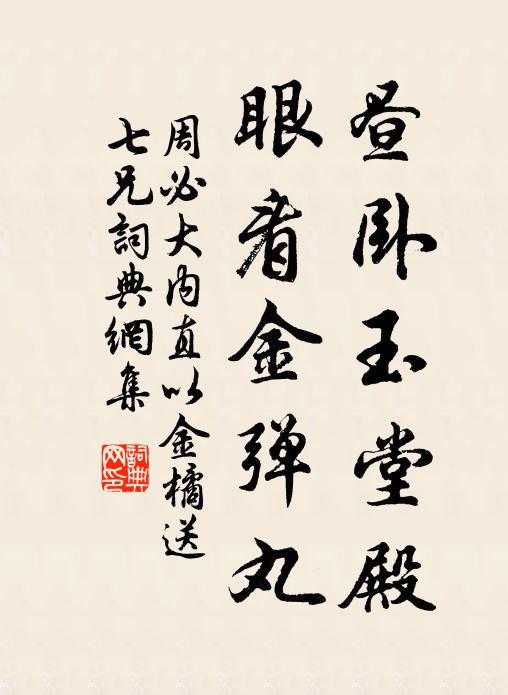 昼卧玉堂殿
眼看金弹丸
周必大内直以金橘送
七兄詞典網集
詞典網印